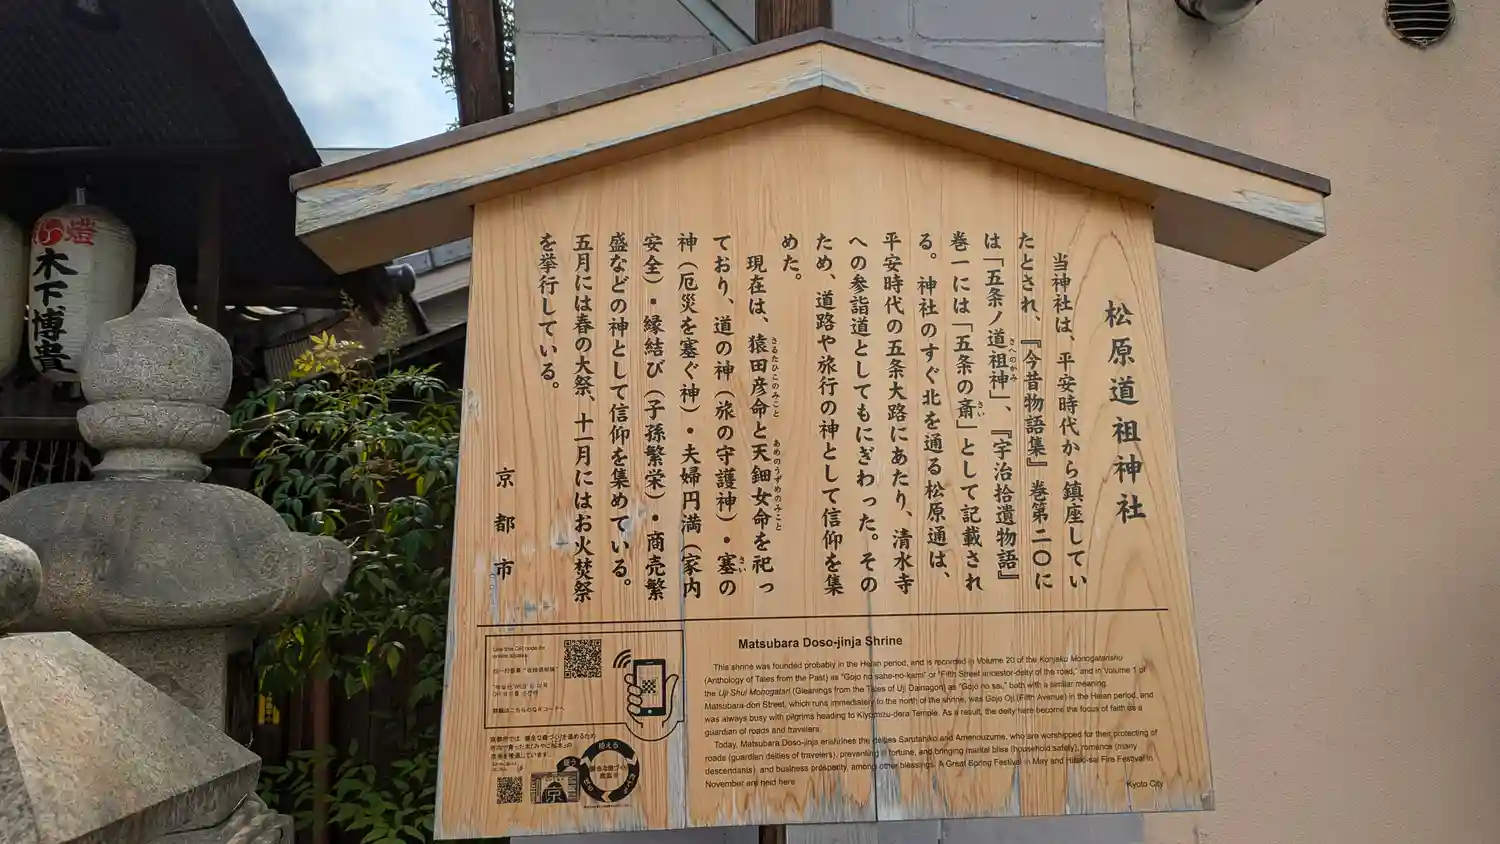 松原道祖神社
当神社は、平安時代から鎮座してい
たとされ、『今昔物語集』巻第二〇に
は「五条ノ道祖神」、『宇治拾遺物語』
さへのかみ
巻一には「五条の斎」として記載され
さい
る。神社のすぐ北を通る松原通は、
平安時代の五条大路にあたり、清水寺
への参詣道としてもにぎわった。その
ため、道路や旅行の神として信仰を集
めた。
現在は、猿田彦命と天鈿女命を祀っ
さるたひこのみこと
あめのうずめのみこと
ており、道の神（旅の守護神）・塞の
さい
神（厄災を塞ぐ神）・夫婦円満（家内
安全）・縁結び（子孫繁栄）・商売繁
盛などの神として信仰を集めている。
五月には春の大祭、十一月にはお火焚祭
を挙行している。
京都市
Matsubara Doso-jinja Shrine
This shrine was founded probably in the Heian period, and is recorded in Volume 20 of the Konjaku Monogatarishu
(Anthology of Tales from the Past) as "Gojo no sahe-no-kami" or "Fifth Street ancestor-deity of the road," and in Volume 1 of
the Uji Shui Monogatari (Gleanings from the Tales of Uji Dainagon) as "Gojo no sai," both with a similar meaning.
Matsubara-dori Street, which runs immediately to the north of the shrine, was Gojo Oji (Fifth Avenue) in the Heian period, and
was always busy with pilgrims heading to Kiyomizu-dera Temple. As a result, the deity here become the focus of faith as a
guardian of roads and travelers.
Today, Matsubara Doso-jinja enshrines the deities Sarutahiko and Amenouzume, who are worshipped for their protecting of
roads (guardian deities of travelers), preventing ill fortune, and bringing marital bliss (household safety), romance (many
descendants), and business prosperity, among other blessings. A Great Spring Festival in May and Hitaki-sai Fire Festival in
November are held here.
Kyoto City
Use this QR code for
詳細はこちらのQRコードへ
京都府では、健全な森づくりを進めるため
植える
燈
木下博貴